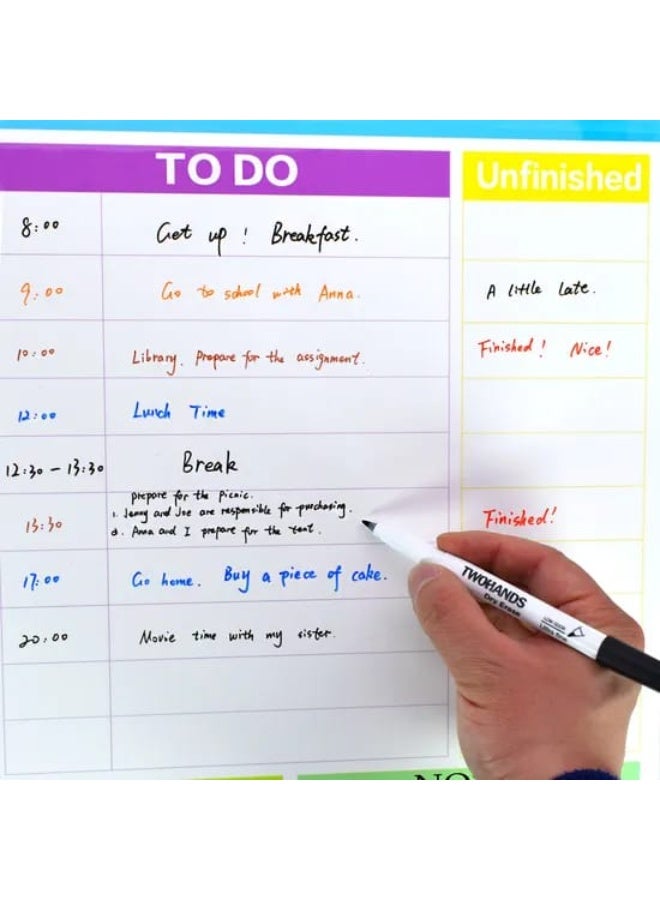 TO DO
Unfinished
8:00 Get up! Breakfast.
9:00 Go to school with Anna. A little late.
10:00 Library. Prepare for the assignment. Finished! Nice!
12:00 Lunch Time
12:30 - 13:30 Break
prepare for the picnic.
13:30 1. Jenny and Joe are responsible for purchasing. Finished!
2. Anna and I prepare for the tent.
17:00 Go home. Buy a piece of cake.
20:00 Movie time with my sister.
TWOHANDS
Dry Erase
NO